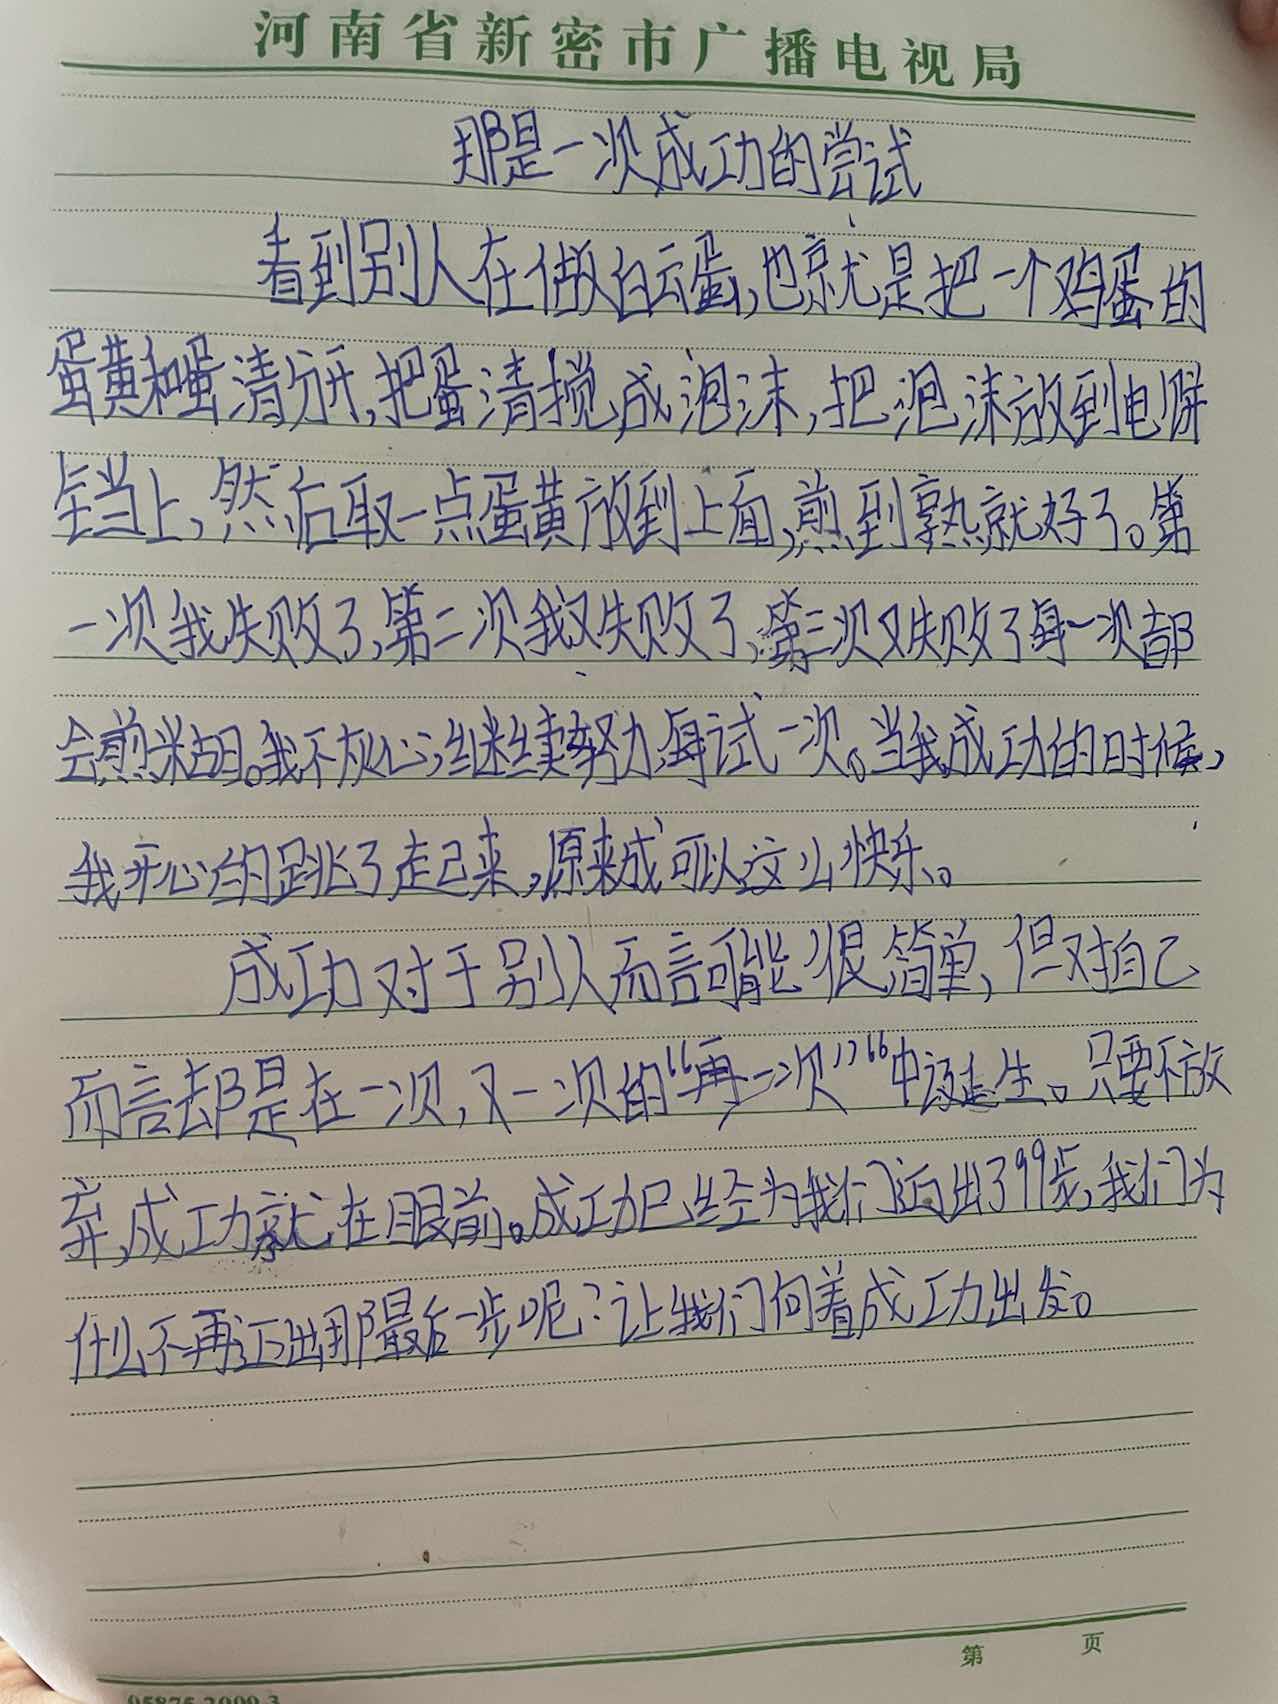 河南省新密市广播电视局
那是一次成功的尝试
看到别人在做白云蛋,也就是把一个鸡蛋的
蛋黄和蛋清分开,把蛋清搅成泡沫,把泡沫放到电饼
铛上,然后取一点蛋黄放到上面,煎到熟就好了。第
一次我失败了,第二次我又失败了,第三次又失败了每一次都
会煎糊。我不灰心,继续努力,每试一次。当我成功的时候,
我开心的跳了起来,原来成可以这么快乐。
成功对于别人而言可能很简单,但对自己
而言却是在一次,又一次的“再一次”“中诞生。只要不放
弃,成功就在眼前。成功已经为我们迈出了99步,我们为
什么不再迈出那最后一步呢?让我们向着成功出发。
第 页